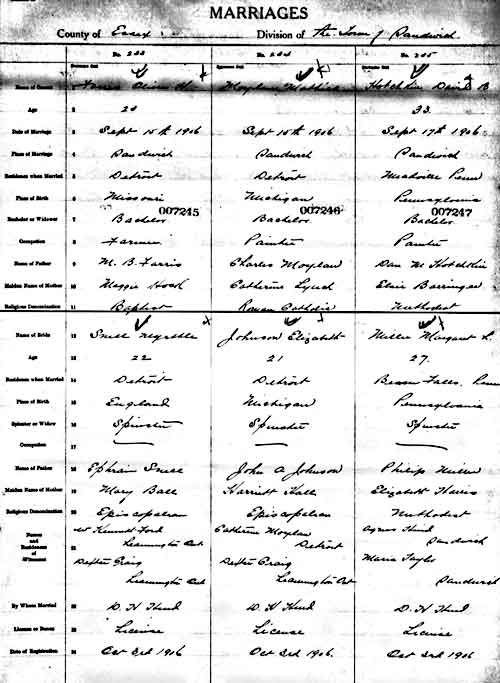 MARRIAGES
County of Essex Division of The Town of Sandwich
No. 233 No. 234 No. 235
Name of Groom Farris Moylan Hotchkin David B
Age 2 33
Date of Marriage 3 Sept 15th 1906 Sept 15th 1906 Sept 17th 1906
Place of Marriage 4 Sandwich Sandwich Sandwich
Residence when Married 5 Detroit Detroit Meadville Penn
Place of Birth 6 Missouri Michigan Pennsylvania
007245 007246 007247
Bachelor or Widower 7 Bachelor Bachelor Bachelor
Occupation 8 Farmer Painter Painter
Name of Father 9 M. B. Farris Charles Moylan Dan M Hotchkin
Maiden Name of Mother 10 Maggie Hood Catherine Lynch Elvie Barringer
Religious Denomination 11 Baptist Roman Catholic Methodist
Name of Bride 12 Snell Myrtle Johnson Elizabeth Miller Margaret L.
Age 13 22 21 27
Residence when Married 14 Detroit Detroit Beaver Falls, Penn
Place of Birth 15 England Michigan Pennsylvania
Spinster or Widow 16 Spinster Spinster Spinster
Occupation 17
Name of Father 18 Ephraim Snell John A Johnson Philip Miller
Maiden Name of Mother 19 Mary Ball Harriett Hall Elizabeth
Religious Denomination 20 Episcopalian Episcopalian Methodist
Names and Residences of Witnesses 21
W Kennett Ford Catherine Moylan Agnes Hind
Leamington Ont Detroit Sandwich
Dexter Craig Dexter Craig Maria Taylor
Leamington Ont Leamington Ont Sandwich
By Whom Married D. H Hind D. H Hind D. H Hind
License or Banns License License License
Date of Registration 24 Oct 3rd 1906 Oct 3rd 1906. Oct 3rd 1906